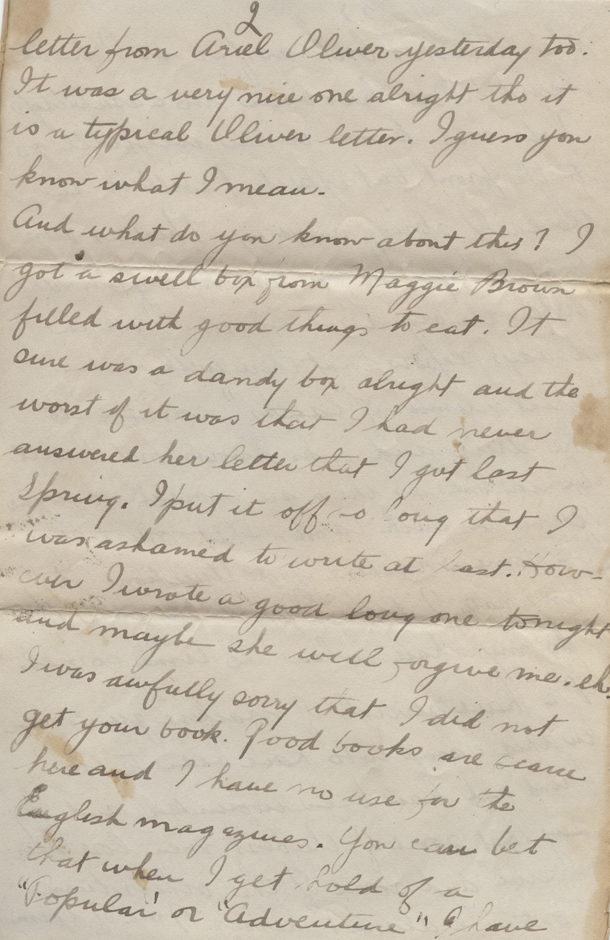 2
letter from Ariel Oliver yesterday too.
It was a very nice one alright tho it
is a typical Oliver letter. I guess you
know what I mean.
And what do you know about this? I
got a swell box from Maggie Brown
filled with good things to eat. It
sure was a dandy box alright and the
worst of it was that I had never
answered her letter that I got last
Spring. I put it off so long that I
was ashamed to write at last. How-
ever I wrote a good long one tonight
and maybe she will forgive me. eh.
I was awfully sorry that I did not
get your book. Good books are scarce
here and I have no use for the
English magazines. You can bet
that when I get hold of a
"Popular" or "Adventure" I have